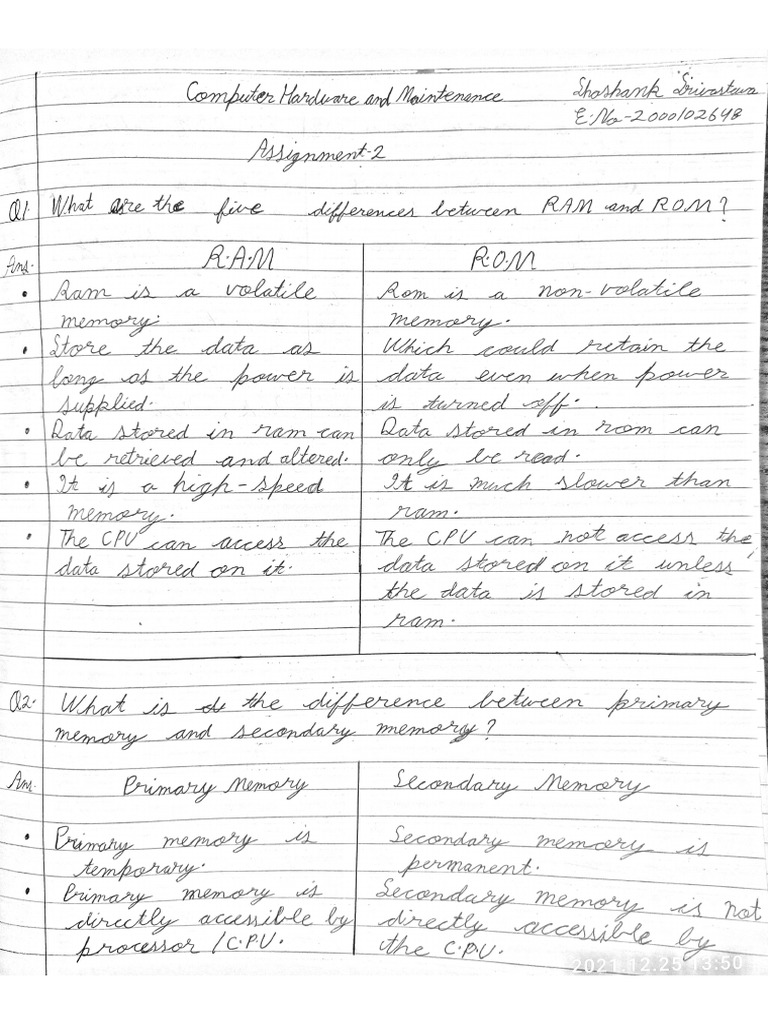 Computer Hardware and Maintenance
Shashank Srivastava
E.No-2000102648
Assignment-2
Q1. What are the five differences between RAM and ROM?
Ans. R.A.M R.O.M
• Ram is a volatile Rom is a non-volatile
memory. memory.
• Store the data as Which could retain the
long as the power is data even when power
supplied. is turned off.
• Data stored in ram can Data stored in rom can
be retrieved and altered. only be read.
• It is a high-speed It is much slower than
memory. ram.
• The CPU can access the The CPU can not access the
data stored on it. data stored on it unless
the data is stored in
ram.
Q2. What is the difference between primary
memory and secondary memory?
Ans. Primary Memory Secondary Memory
• Primary memory is Secondary memory is
temporary. permanent.
• Primary memory is Secondary memory is not
directly accessible by directly accessible by
processor / C.P.U. the C.P.U.
2021.12.25 13:50